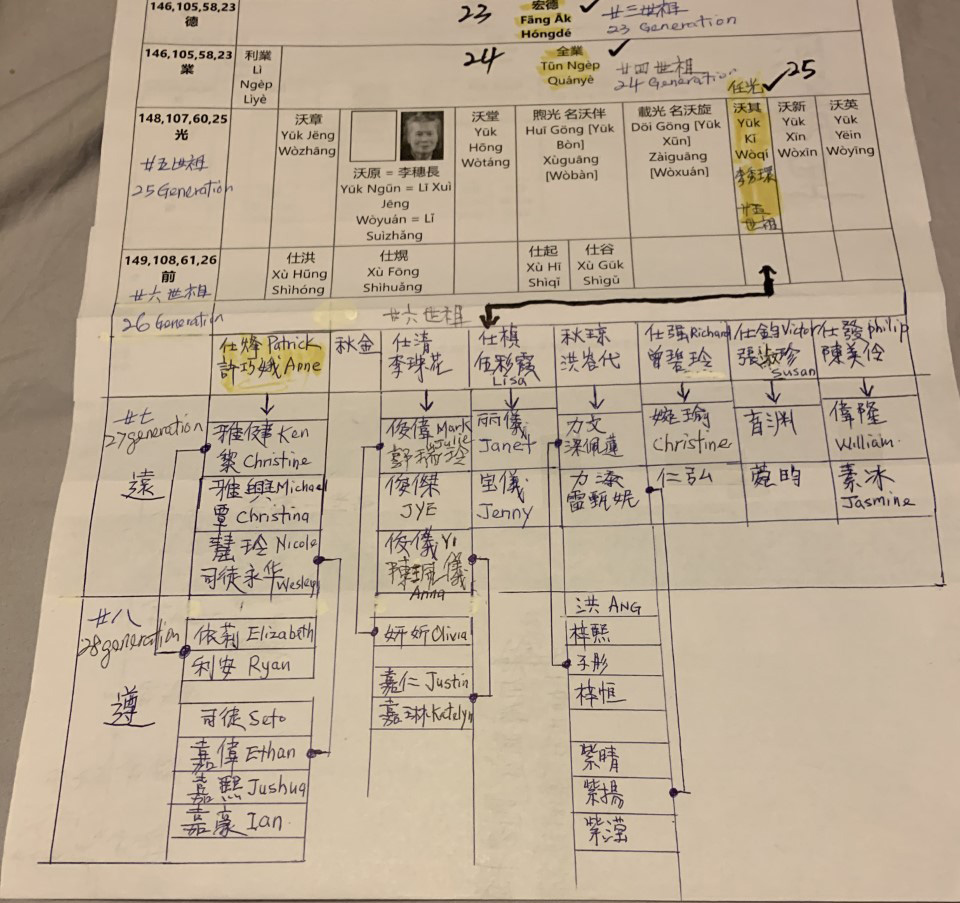 146,105,58,23
德
23
宏德
Fāng Āk
Hóngdé
廿三世祖
23 Generation
146,105,58,23
業
利業
Lì
Ngèp
Lìyè
24
全業
Tūn Ngèp
Quányè
廿四世祖
24 Generation
任光
25
148,107,60,25
光
廿五世祖
25 Generation
沃章
Yūk Jēng
Wòzhāng
沃原 = 李穗長
Yūk Ngūn = Lī Xuì
Jēng
Wòyuán = Lǐ
Suìzhǎng
沃堂
Yūk
Hōng
Wòtáng
煦光 名沃伴
Huī Gōng [Yūk
Bòn]
Xùguāng
[Wòbàn]
載光 名沃旋
Dōi Gōng [Yūk
Xūn]
Zàiguāng
[Wòxuán]
沃其
Yūk
Kī
Wòqí
李秀環
廿五
世祖
沃新
Yūk
Xīn
Wòxīn
沃英
Yūk
Yēin
Wòyīng
149,108,61,26
前
廿六世祖
26 Generation
仕洪
Xù Hūng
Shìhóng
仕熀
Xù Fōng
Shìhuǎng
仕起
Xù Hī
Shìqǐ
仕谷
Xù Gūk
Shìgǔ
廿六世祖
仕烽 Patrick
許巧娥 Anne
秋金
仕清
李珠花
仕楨
伍彩霞
Lisa
秋琼
洪岳代
仕强 Richard
曾碧玲
仕鈞 Victor
張淑珍
Susan
仕發 philip
陳美伶
廿七
27generation
遠
雅健 Ken
黎 Christine
雅興 Michael
覃 Christina
慧玲 Nicole
司徒永华 Wesley
俊偉 Mark
郭瑞玲 Julie
俊傑
JYE
俊儀 Yi
陳珮儀
Anna
丽儀
Janet
宝儀
Jenny
力文
梁佩蓮
力添
雷甄妮
婉瑜
Christine
仁弘
育渊
菀昀
偉隆
William
素冰
Jasmine
廿八
28generation
遵
依莉 Elizabeth
利安 Ryan
司徒 Seto
嘉偉 Ethan
嘉熙 Jushua
嘉豪 Ian
妍妡 Olivia
嘉仁 Justin
嘉琳 Katelyn
洪 ANG
梓熙
子彤
梓恒
紫晴
紫揚
紫滢